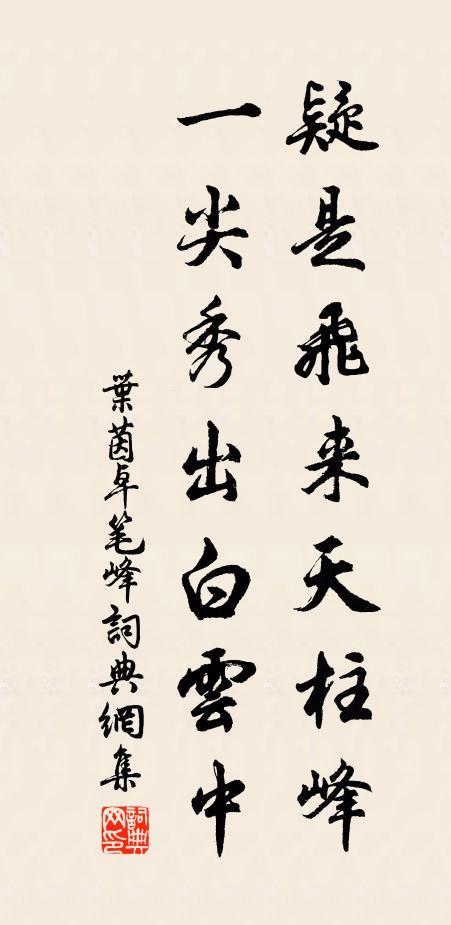 疑是飛来天柱峰
一尖秀出白雲中
葉茵卓笔峰詞典網集
詞典網印